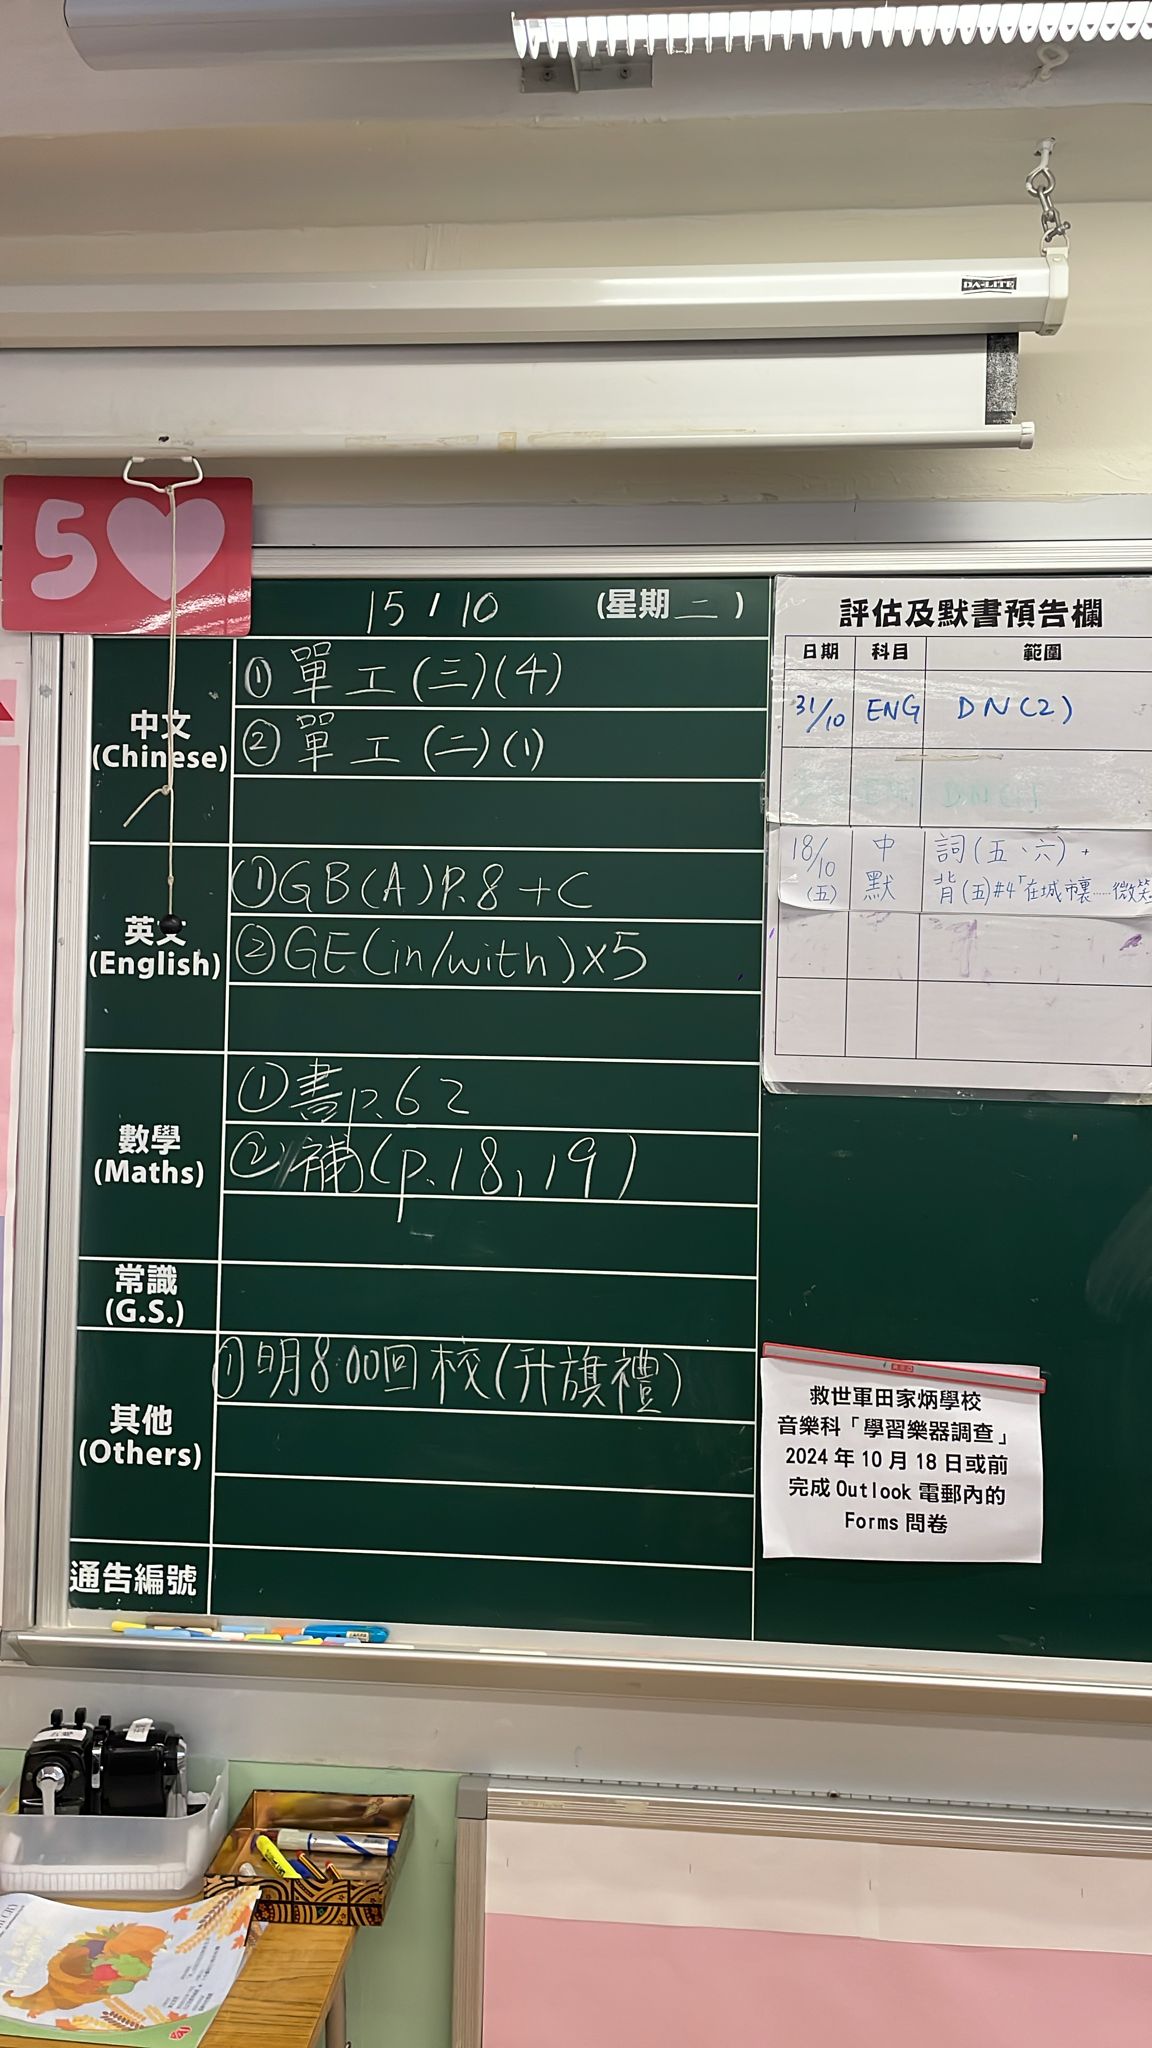 DA-LITE
5
15 / 10 (星期二)
中文
(Chinese)
① 單工(三)(4)
② 單工(二)(1)
英文
(English)
① GB(A)P.8+C
② GE(in/with)x5
數學
(Maths)
① 書p.62
② 補(p.18,19)
常識
(G.S.)
其他
(Others)
① 明8:00回校(升旗禮)
通告編號
評估及默書預告欄
日期 科目 範圍
31/10 ENG DN(2)
18/10 (五) 中默 詞(五、六)+
背(五)#4「在城市裏……微笑
救世軍田家炳學校
音樂科「學習樂器調查」
2024年10月18日或前
完成Outlook電郵內的
Forms問卷